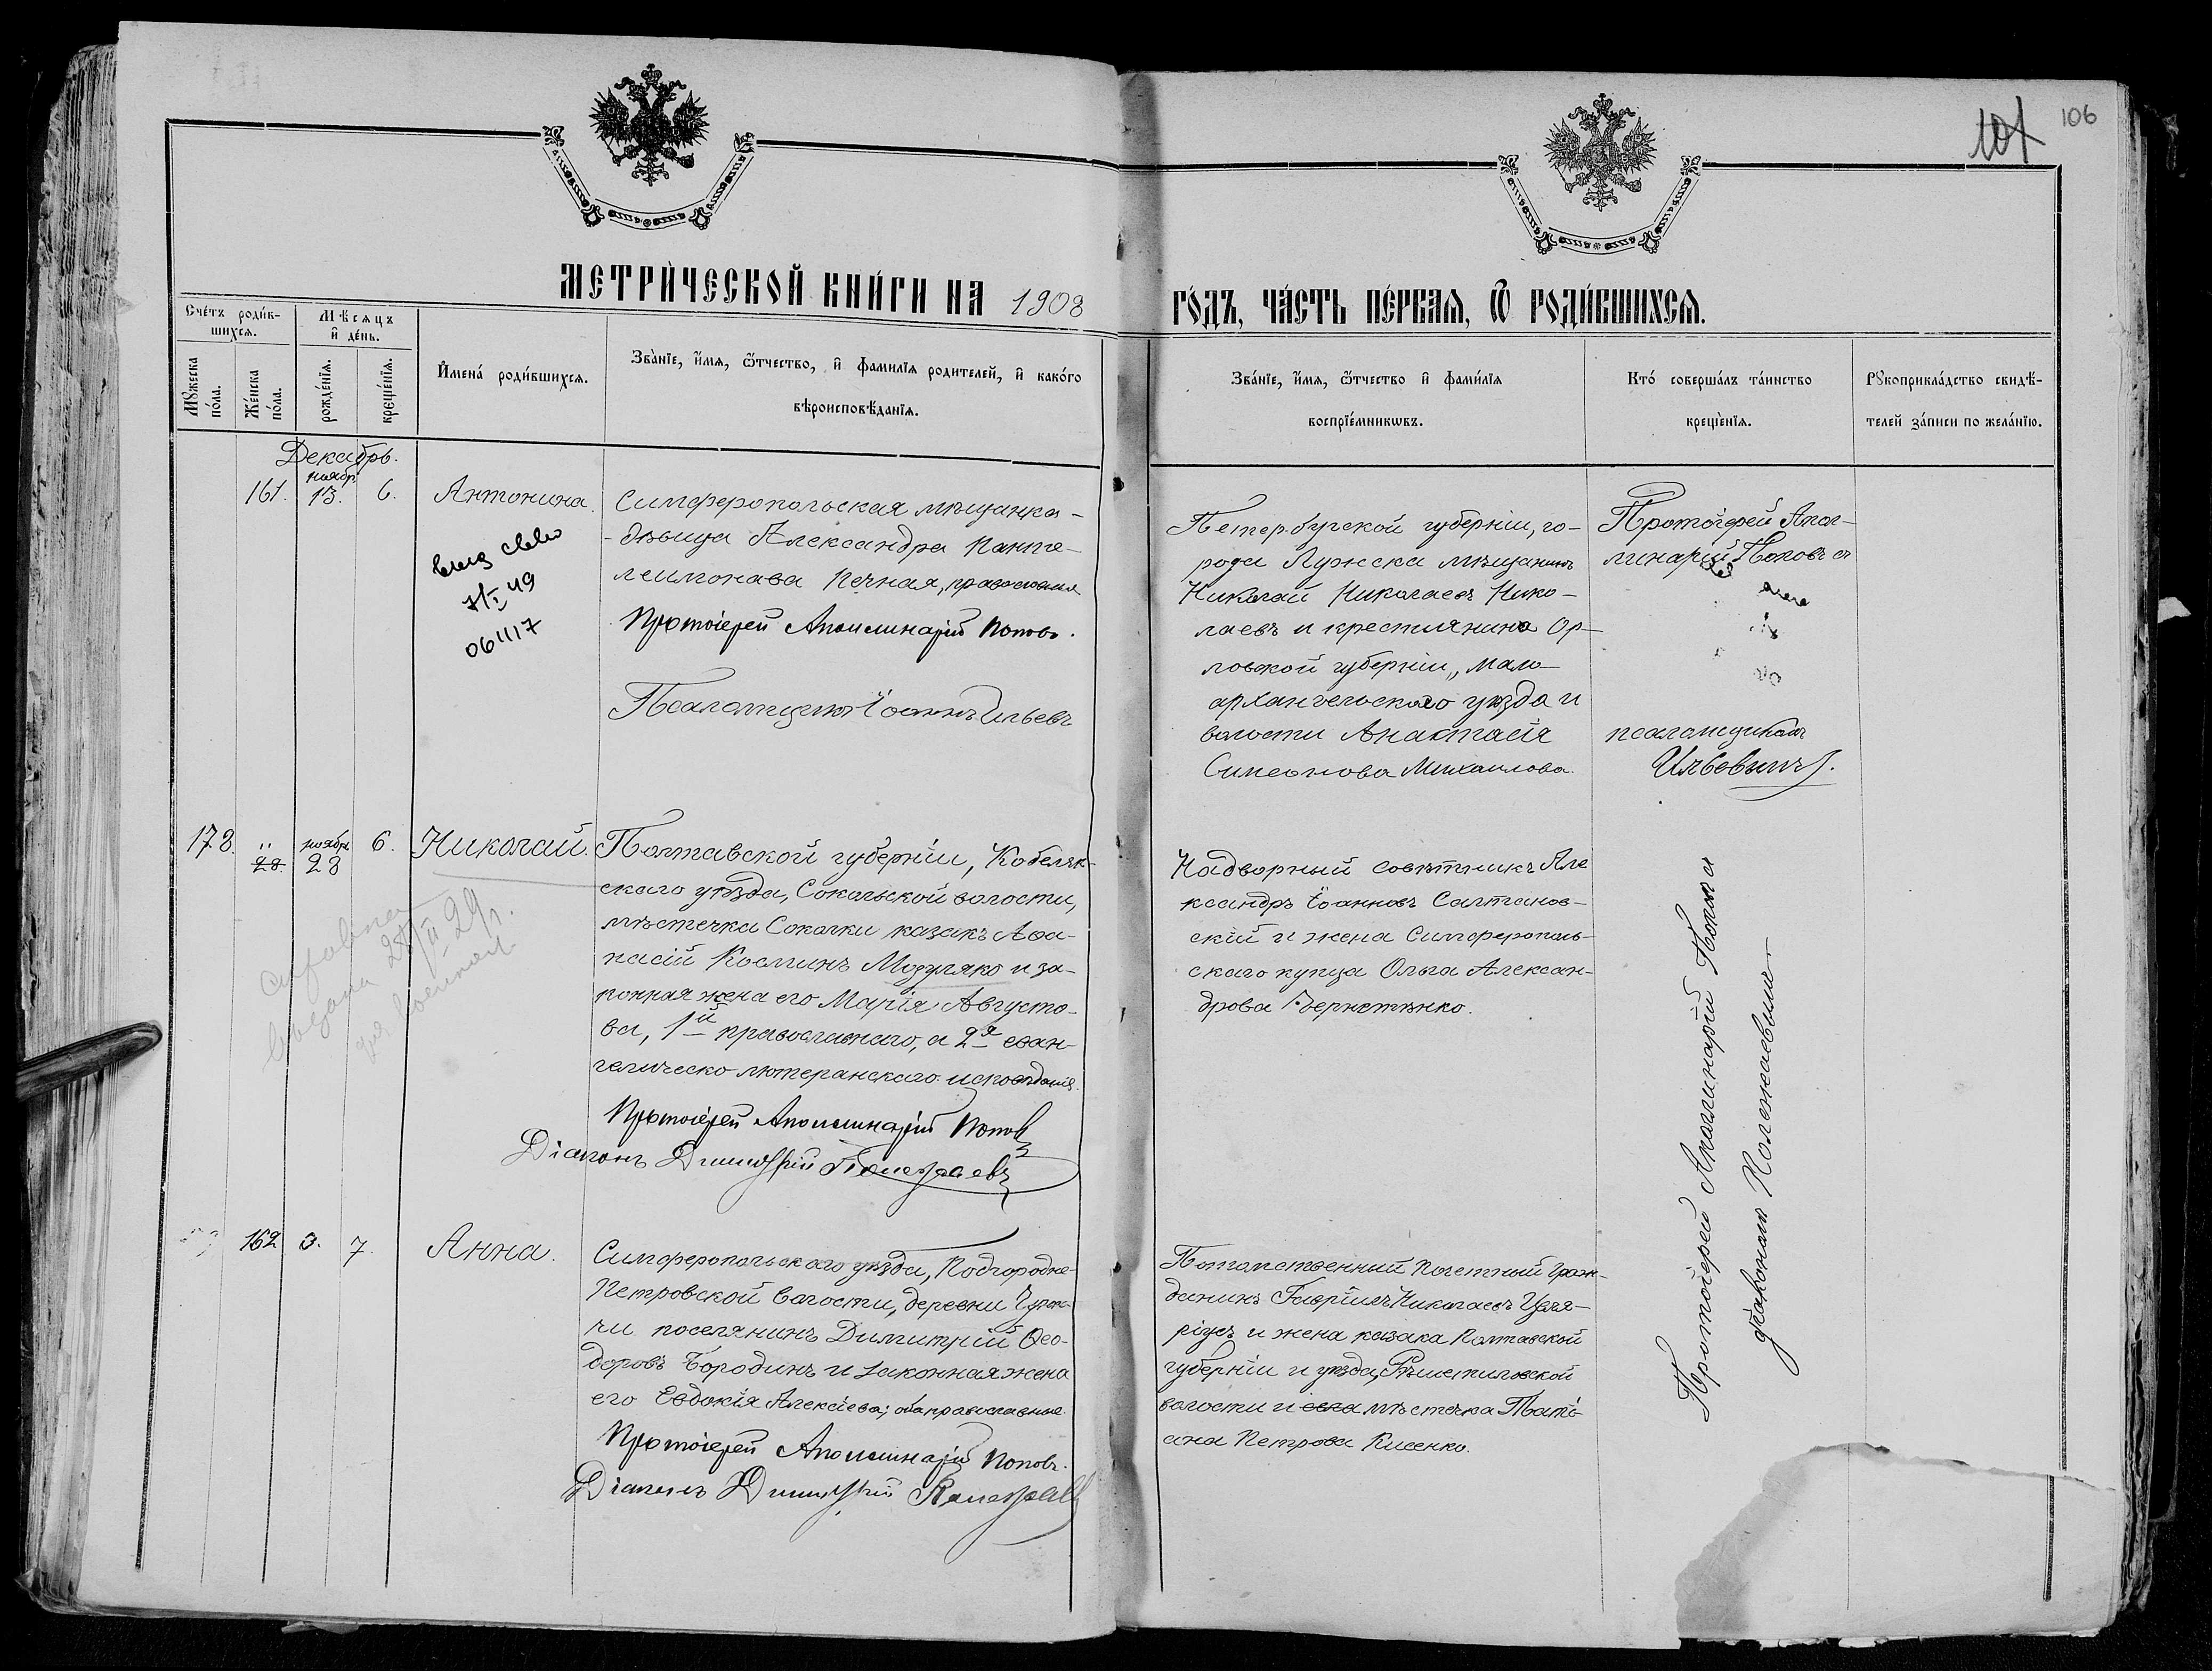 106
101
МЕТРИ́ЧЕСКОЙ КНИ́ГИ НА 1908
ГО́ДЪ, ЧА́СТЬ ПЕ́РВАѦ, Ѿ РОДИ́ВШИХСѦ.
Сче́тъ роди́в-
шихсѧ.
Мꙋжеска
по́ла.
Же́нска
по́ла.
Мѣ́сѧцъ
и҆ де́нь.
рожде́нїѧ.
креще́нїѧ.
И҆мена̀ роди́вшихсѧ.
Зва́нїе, и҆́мѧ, ѻ҆́тчество, и҆ фами́лїѧ роди́телей, и҆ како́го
вѣроисповѣ́данїѧ.
Зва́нїе, и҆́мѧ, ѻ҆́тчество и҆ фами́лїѧ
воспрїе́мникѡвъ.
Кто́ соверша́лъ та́инство
креще́нїѧ.
Рꙋкоприкла́дство свидѣ́-
телей за́писи по жела́нїю.
Декабрь.
161. ноябр 13. 6. Антонина.
7/I 49
061117
Симферопольская мѣщанка -
- дѣвица Александра Панте-
леимонава Печная, православная
Протоіерей Аполлинарій Поповъ.
Псаломщикъ Іоаннъ Ильевъ
Петербугской губерніи, го-
рода Лужска мѣщанинъ
Николай Николаевъ Нико-
лаевъ и крестьянина Ор-
ловской губерніи, мало-
архангельскаго уѣзда и
волости Анастасія
Симеонова Михаилова.
Протоіерей Апол-
линарій Поповъ съ
псаломщикомъ
Ильевымъ.
178. " 28. ноябр 28 6. Николай.
справка
выдана 28/II 29 г.
Полтавской губерніи, Кобеляк-
скаго уѣзда, Сокольской волости,
мѣстечка Соколки казакъ Аѳа-
насій Косминъ Модуляко и за-
конная жена его Марія Августо-
ва, 1й православнаго, а 2я еван-
гелическо лютеранскаго исповѣданія.
Протоіерей Аполлинарій Поповъ
Діаконъ Димитрій Полежаевъ
Надворный совѣтникъ Але
ксандръ Іоанновъ Салтанов-
скій и жена Симферополь-
скаго купца Ольга Алексан-
дрова
Протоіерей Аполлинарій Поповъ съ
діакономъ Полежаевымъ
162 3. 7. Анна.
Симферопольскаго уѣзда, Подгородне-
Петровской волости, деревни
чи поселянинъ Димитрій Ѳео-
доровъ Бородинъ и законная жена
его Евдокія Алексіева; оба православные.
Протоіерей Аполлинарій Поповъ.
Діаконъ Димитрій Полежаевъ
Потомственный почетный граж-
данинъ Гавріилъ Николаевъ
ріусъ и жена казака Полтавской
губерніи и уѣзда, Рѣшетиловской
волости и села мѣстечка Татi-
ана Петрова Кисенко.